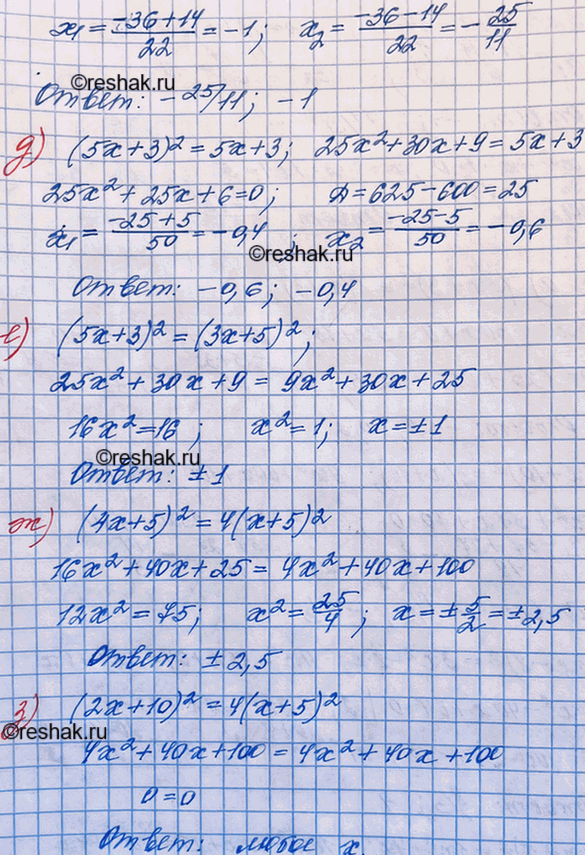 x₁ = (-36+14)/22 = -1; x₂ = (-36-14)/22 = -25/11
©reshak.ru
Ответ: -25/11; -1
д) (5x+3)² = 5x+3; 25x²+30x+9 = 5x+3
25x²+25x+6=0; D=625-600=25
x₁ = (-25+5)/50 = -0,4; x₂ = (-25-5)/50 = -0,6
©reshak.ru
Ответ: -0,6; -0,4
е) (5x+3)² = (3x+5)²;
25x²+30x+9 = 9x²+30x+25
16x²=16; x²=1; x=±1
©reshak.ru
Ответ: ±1
ж) (4x+5)² = 4(x+5)²
16x²+40x+25 = 4x²+40x+100
12x²=75; x²=25/4; x=±5/2=±2,5
Ответ: ±2,5
з) (2x+10)² = 4(x+5)²
©reshak.ru
4x²+40x+100 = 4x²+40x+100
0=0
Ответ: любое x.